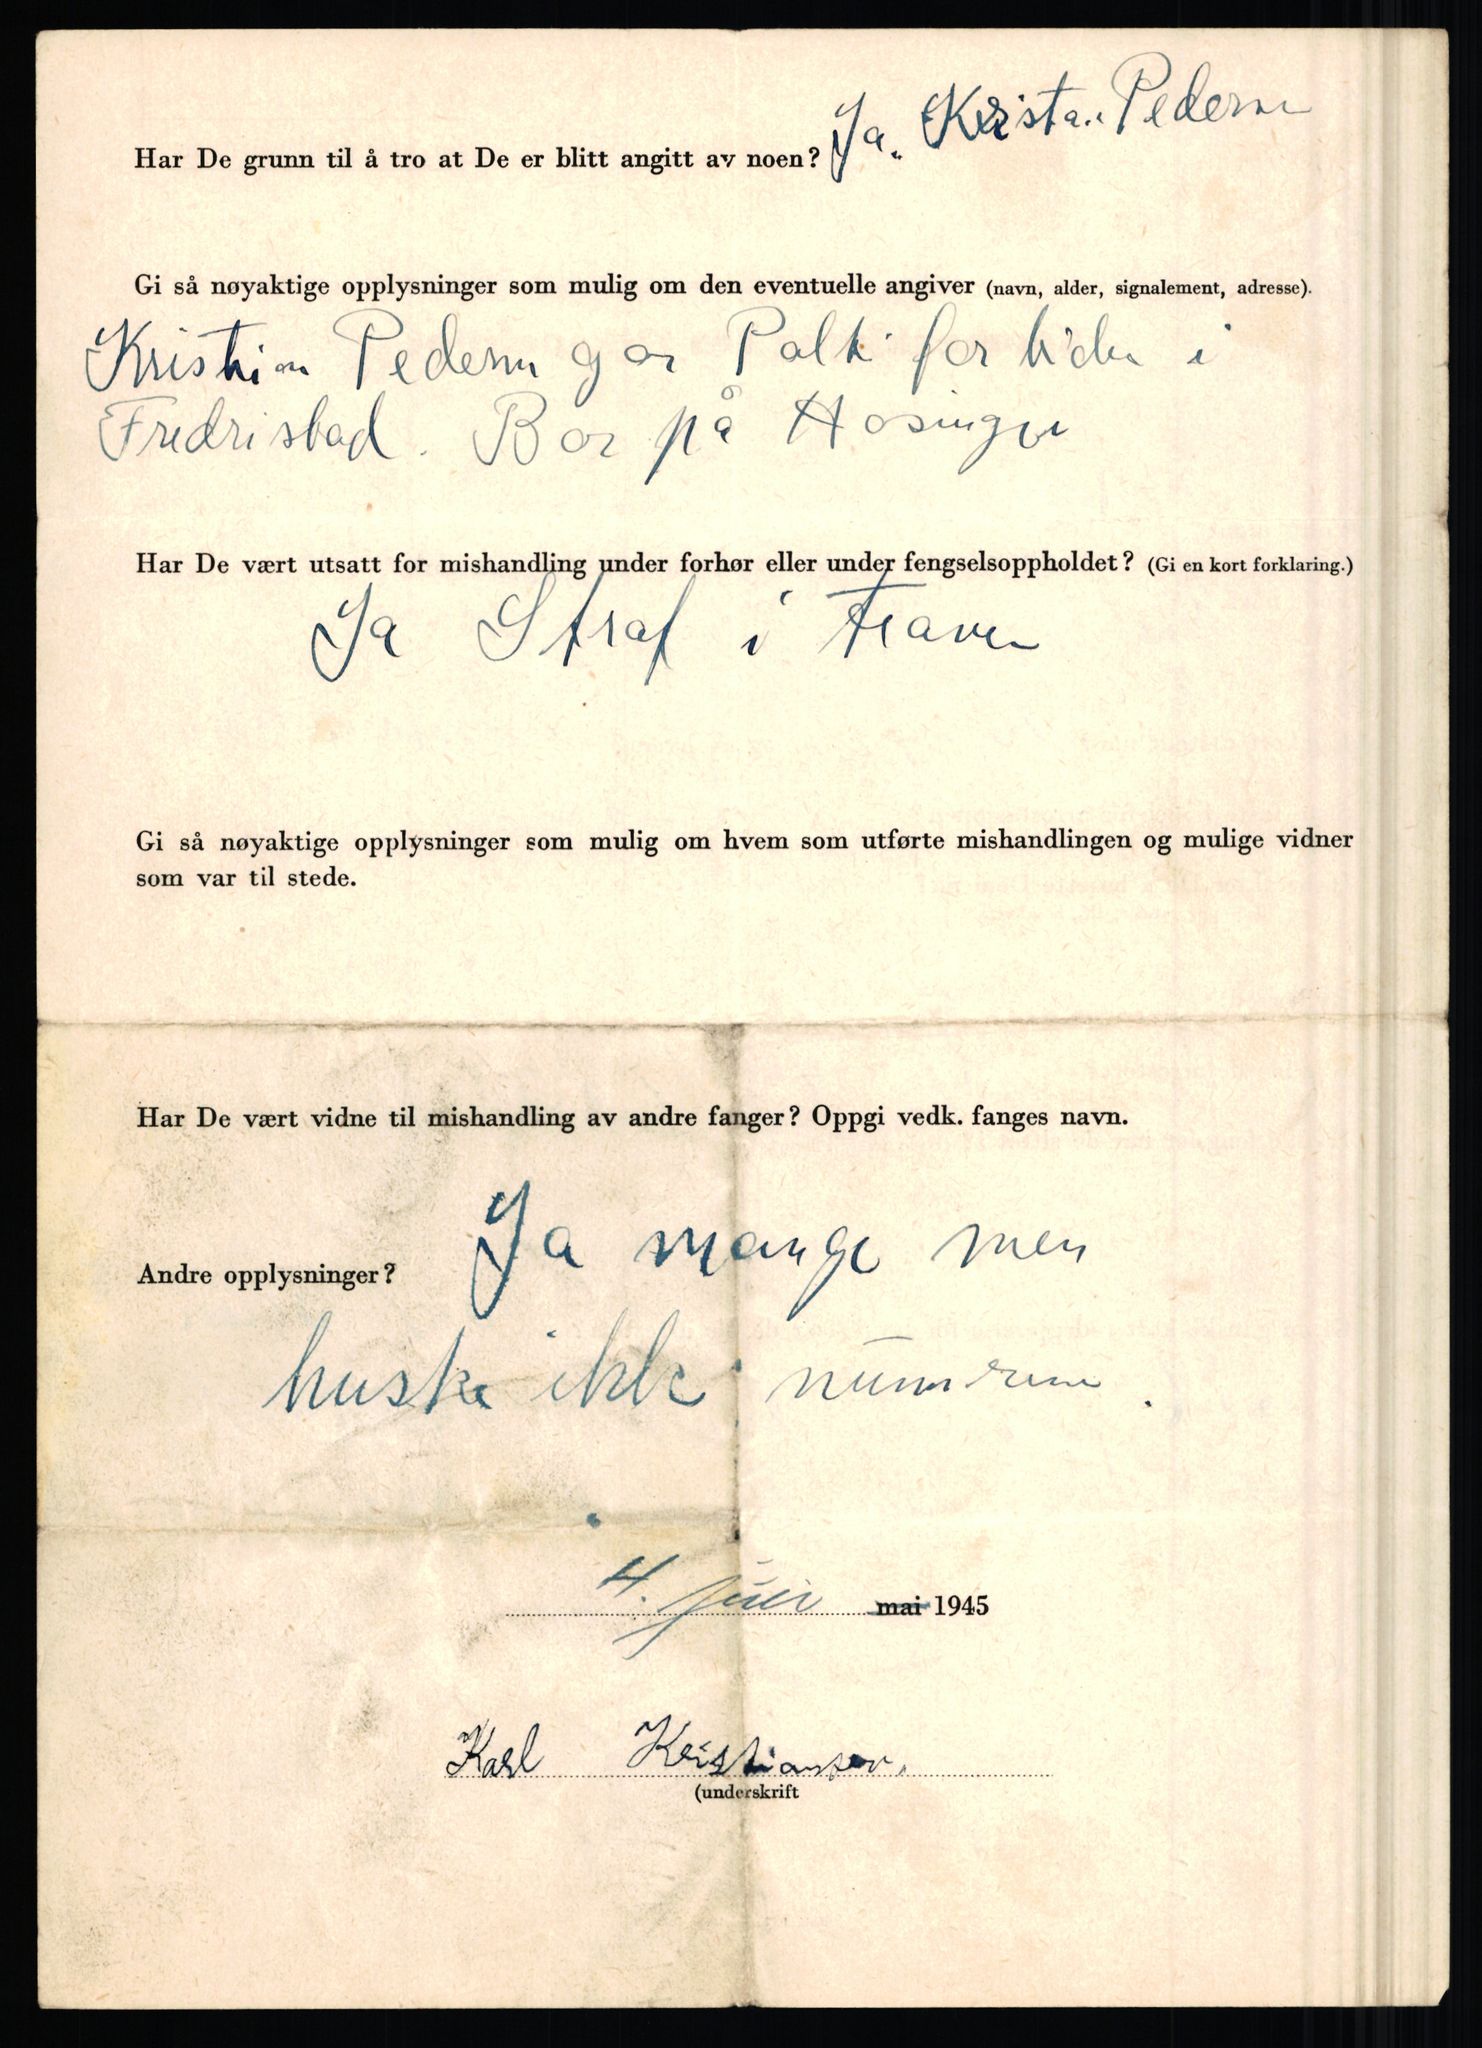 Har De grunn til å tro at De er blitt angitt av noen? Ja. Kristian Pedersen
Gi så nøyaktige opplysninger som mulig om den eventuelle angiver (navn, alder, signalement, adresse).
Kristian Pedersen for tiden i
Fredrisstad. Bor på
Har De vært utsatt for mishandling under forhør eller under fengselsoppholdet? (Gi en kort forklaring.)
Ja Straf i
Gi så nøyaktige opplysninger som mulig om hvem som utførte mishandlingen og mulige vidner
som var til stede.
Har De vært vidne til mishandling av andre fanger? Oppgi vedk. fanges navn.
Ja mange men
Andre opplysninger?
huske ikke
4. juli mai 1945
Karl Kristiansen.
(underskrift